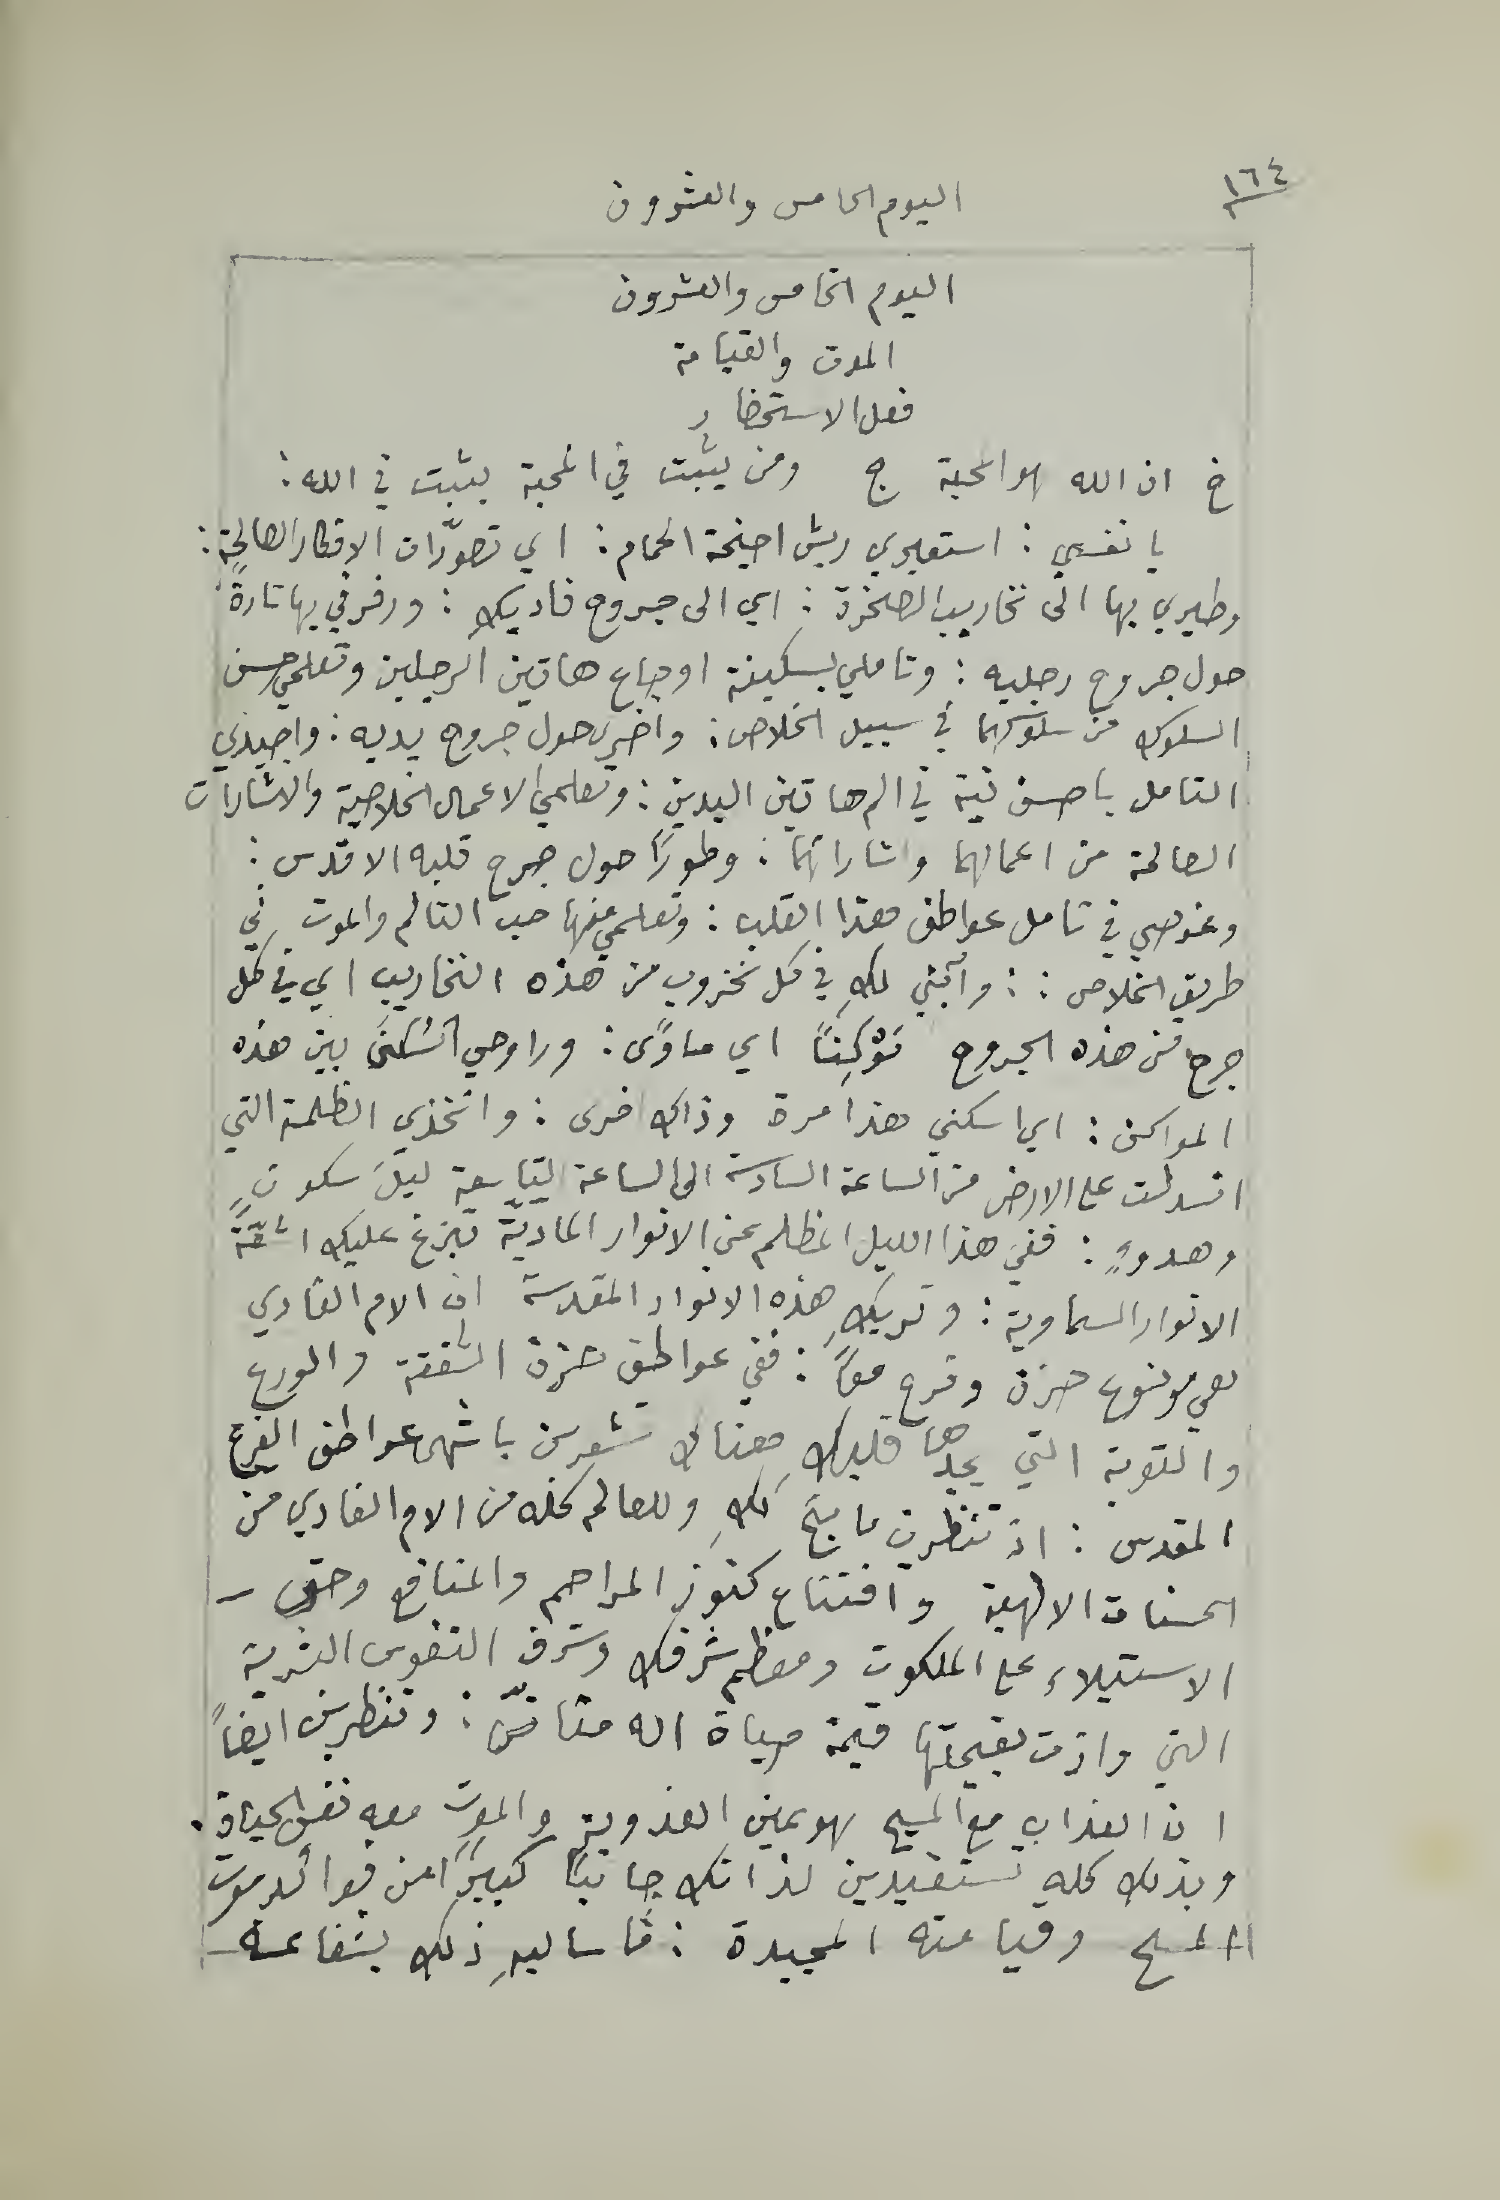 ١٦٤
اليوم الخامس والعشرون
اليوم الخامس والعشرون
الموت والقيامة
فعل الاستحضار
خ ان الله هو المحبة ج ومن يثبت في المحبة يثبت في الله :
يا نفسي : استعيري ريش اجنحة الحمام : اي تصوّرات الافكار الصالحة :
وطيري بها الى نخاريب الصخرة : اي الى جروح فاديكِ : ورفرفي بها تارةً
حول جروح رجليه : وتاملي بسكينة اوجاع هاتين الرجلين وتعلمي حسن
السلوك من سلوكهما في سبيل الخلاص : واخرى حول جروح يديه : واجيدي
التامل باحسن نية في الم هاتين اليدين : وتعلمي الاعمال الخلاصية والاشارات
الصالحة من اعمالهما واشاراتهما : وطورًا حول جرح قلبه الاقدس :
وغوصي في تامل عواطف هذا القلب : وتعلمي منها حب التالم والموت في
طريق الخلاص : : وابني لكِ في كل نخروب من هذه النخاريب اي في كل
جرح من هذه الجروح مَوْكِنًا اي ماوًى : وراوحي السُكنَى بين هذه
المواكن : اي اسكني هذا مرة وذاك اخرى : واتخذي الظلمة التي
انسدلت على الارض من الساعة السادسة الى الساعة التاسعة ليلَ سكونٍ
وهدوءٍ : ففي هذا الليل المظلم عن الانوار الماديّة تبزغ عليك اشعّة
الانوار السماوية : وتريكِ هذه الانوار المقدسة ان الام الفادي
هي موضوع حزن وفرح معًا : ففي عواطف حزن الشفقة والورع
والتوبة التي يجدها قلبكِ هناك تشعرين باشهى عواطف الفرح
المقدس : اذ تنظرين ما نتج لكِ وللعالم كله من الام الفادي من
الحسنات الالهية وافتتاح كنوز المراحم والمنافع وحق –
الاستيلاء على الملكوت ومعظم شرفك وشرف النفوس البشرية
التي وازت بقيمتها قيمة حياة اله متانّس : وتنظرين ايضًا
ان العذاب مع المسيح هو عين العذوبة والموت معه نفس الحياة .
وبذلك كله تستفيدين لذاتك جانبًا كبيرًا من فوائد موت
المسيح وقيامته المجيدة : فاساليهِ ذلك بشفاعة –